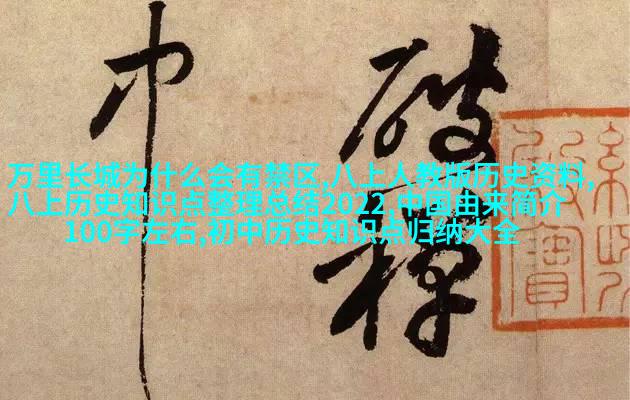 破
万里长城为什么会有禁区,八上人教版历史资料,
八上历史知识点整理总结2022,中国由来简介
100字左右,初中历史知识点归纳大全